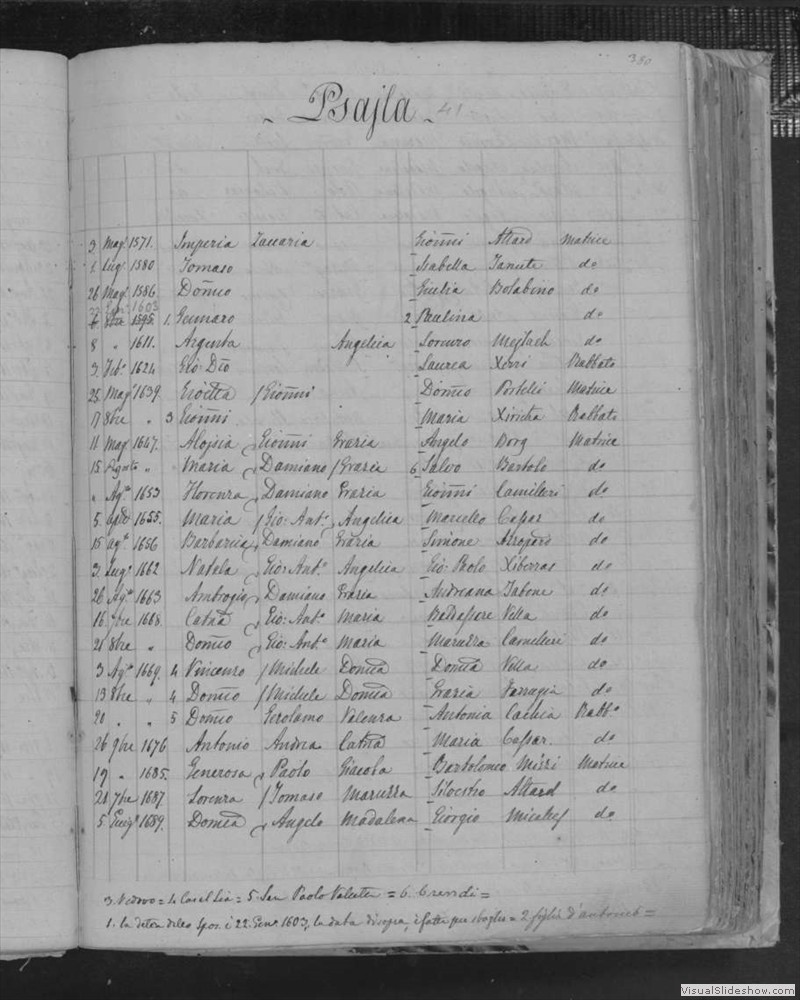 380
Psajla 41
3 Mag.º 1571. Imperia Zaccaria Gionni Attard Matrice
1 Lug.º 1580 Tomaso Isabella do
26 Mag.º 1586 Domco Giulia do
22 Gen.º 1603
1595. 1. Gennaro 2 Paulina do
8 " 1611. Argenta Angelica Lorenzo Mejlach do
3 Feb.º 1624 Gio: Dio Laurea Xerri Rabbato
25 Mag.º 1639. Gionni Domco Portelli Matrice
17 8bre " 3 Gionni Maria Xiricha Rabbato
11 Mag.º 1647. Aloysia Gionni Grazia Angelo Borg Matrice
15 Agosto " Maria Damiano Grazia 6 Salvo Bartolo do
" Ag.º 1653 Florenza Damiano Grazia Gionni Camilleri do
5 1655. Maria Gio: Ant.º Angelica Marcello Caspar do
15 ag.º 1656 Barbarica Damiano Grazia Simone do
3 Lug.º 1662 Natala Gio: Ant.º Angelica Gio: Paolo Xiberras do
26 Ag.º 1663 Ambrogia Damiano Grazia Andreana Zabone do
16 7bre 1668. Catna Gio: Ant.º Maria Baldassare Vella do
21 8bre " Domco Gio: Ant.º Maria Maruzza Camilleri do
3 Ag.º 1669. 4 Vincenzo Michele Domca Domca Vella do
13 8bre " 4 Domco Michele Domca Grazia Farrugia do
20 " " 5 Domco Gerolamo Valenza Antonia Cachia Rabb.º
26 9bre 1676 Antonio Andrea Catna Maria Caspar. do
19 " 1685. Generosa Paolo Giacoba Bartolomeo Mizzi Matrice
21 7bre 1687. Lorenza Tomaso Maruzza Silvestro Attard do
5 Giug.º 1689. Domca Angelo Madalena Giorgio Micallef do
3. Vedovo = 4. Casal Lia = 5. San Paolo Valletta = 6. Crendi =
1. la detta dello Spos. è 22. Gen.º 1603, la data di sopra, è fatta per sbaglio = 2 figlia d'
VisualSlideshow.com